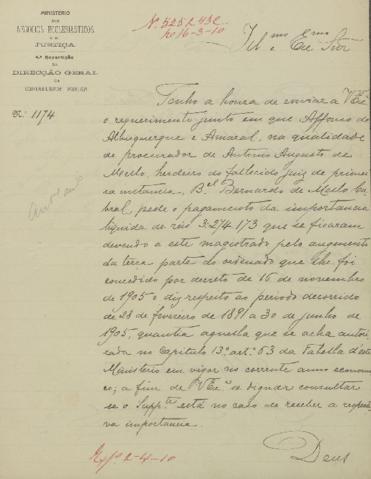 MINISTERIO
DOS
NEGOCIOS ECCLESIASTICOS
E DE
JUSTIÇA
4ª Repartição
DA
DIRECÇÃO GERAL
DA
CONTABILIDADE PUBLICA
N.º 1174
Ill.mo e Ex.mo Snr
Tenho a honra de enviar a V Ex.ª
o requerimento junto em que Affonso de
Albuquerque e Amaral, na qualidade
de procurador de Antonio Augusto de
Mello, herdeiro do fallecido juiz de primei
ra instancia, B.el Bernardo de Mello Ca
bral, pede o pagamento da importancia
liquida de reis 3:274.173 que se ficaram
devendo a este magistrado pelo augmento
da terça parte do ordenado que lhe foi
concedido por decreto de 16 de novembro
de 1905 e diz respeito ao periodo decorrido
de 28 de fevereiro de 1891 a 30 de junho de
1905, quantia aquella que se acha autori
sada no Capitulo 13.º art.º 63 da Tabella d'este
Ministerio em vigor no corrente anno economi
co; a fim de V Ex.ª se dignar consultar
se o Supp.te está no caso de receber a respecti
va importancia.
Deus
2-4-10